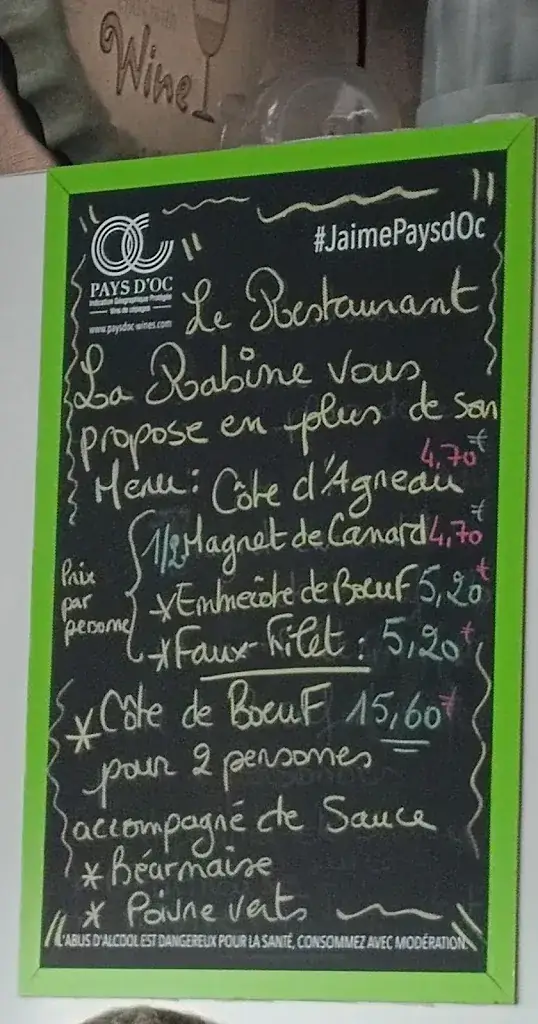 Wine
#JaimePaysdOc
PAYS D'OC
Indication Géographique Protégée
Vins de cépages
www.paysdoc-wines.com
Le Restaurant
La Rabine vous
propose en plus de son
Menu : Côte d'Agneau 4,70€
1/2 Magret de Canard 4,70€
Prix par personne
* Entrecôte de Boeuf 5,20€
* Faux-Filet : 5,20€
* Côte de Boeuf 15,60€
pour 2 personnes
accompagné de Sauce
* Béarnaise
* Poivre verts
L'ABUS D'ALCOOL EST DANGEREUX POUR LA SANTÉ, CONSOMMEZ AVEC MODÉRATION.